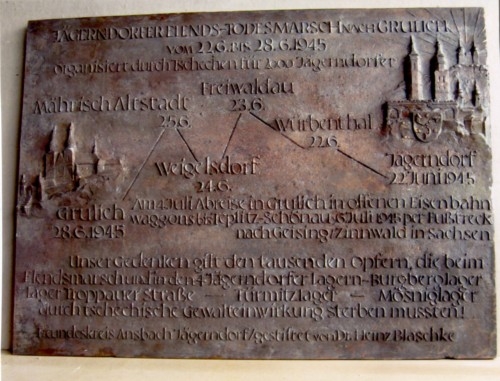 JÄGERNDORFER ELENDS-TODESMARSCH NACH GRULICH
VOM 22.6. BIS 28.6.1945
organisiert durch Tschechen für 2100 Jägerndorfer
Freiwaldau
23.6.
Mährisch Altstadt
25.6.
Würbenthal
22.6.
Weigelsdorf
24.6.
Jägerndorf
22 Juni 1945
Grulich
28.6.1945
Am 4. Juli Abreise in Grulich in offenen Eisenbahn
waggons bis Teplitz-Schönau, Juli 1945 per Fußtreck
nach Geising/Zinnwald in Sachsen
Unser Gedenken gilt den tausenden Opfern, die beim
Elendsmarsch und in den 4 Jägerndorfer Lagern-Burgberglager
Lager Troppauer Straße — Türmitzlager — Mösniglager
durch tschechische Gewalteinwirkung sterben mussten!
Freundeskreis Ansbach Jägerndorf/gestiftet von Dr. Heinz Blaschke